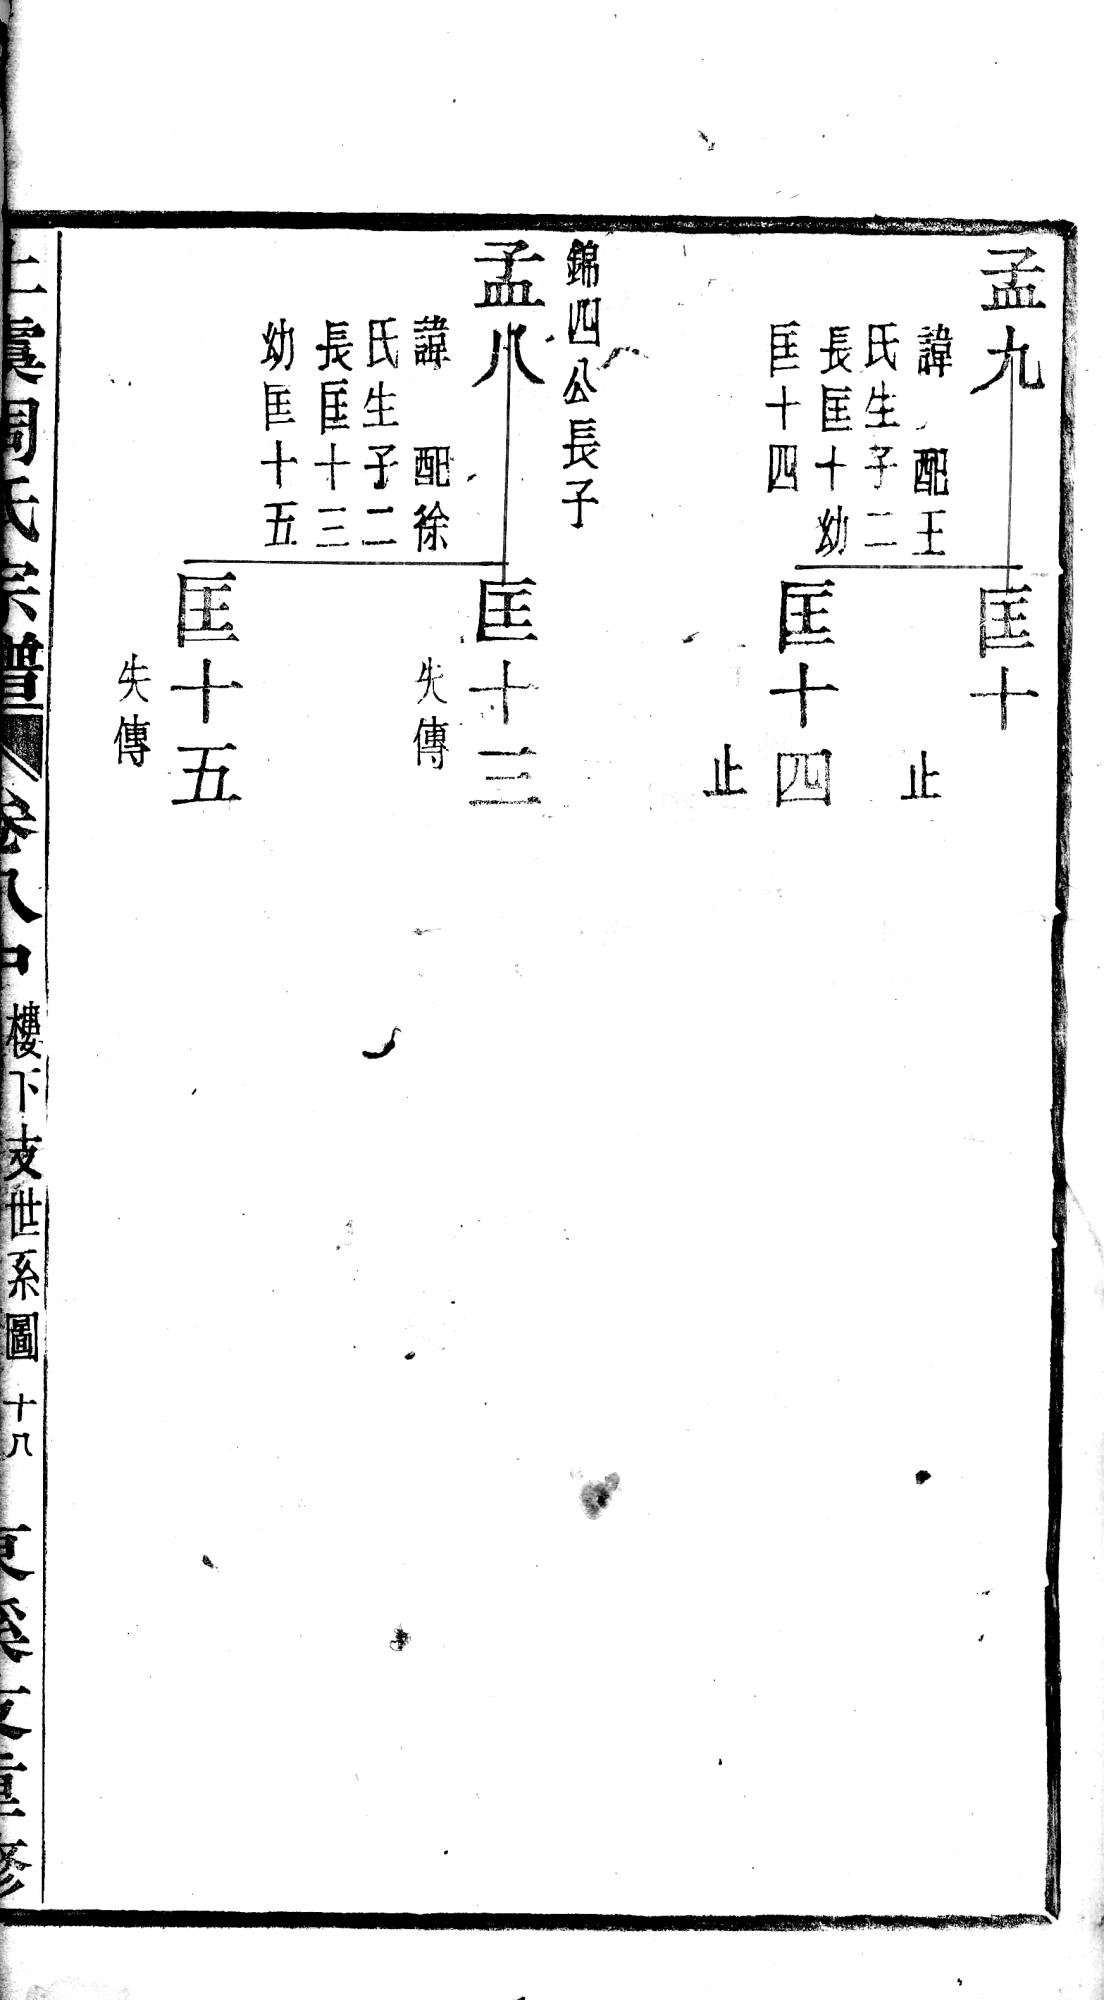 孟九
諱　配王
氏生子二
長匡十幼
匡十四
匡十
止
匡十四
止
錦四公長子
孟八
諱　配徐
氏生子二
長匡十三
幼匡十五
匡十三
失傳
匡十五
失傳
上虞周氏宗譜
卷八中
樓下支世系圖
十八
支重修